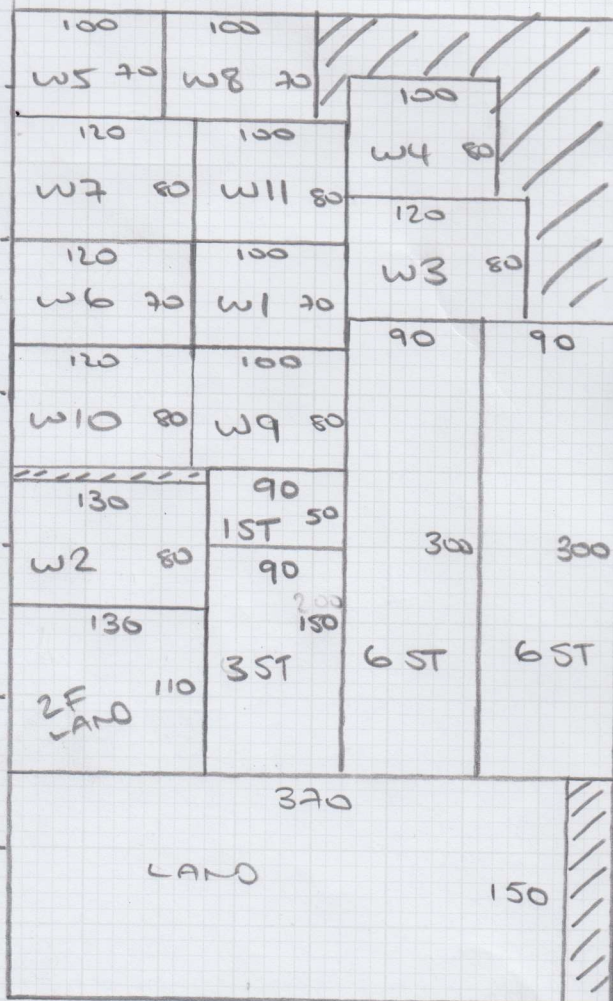 100
W5 70
100
W8 70
100
W4 80
120
W7 80
100
W11 80
120
W3 80
120
W6 70
100
W1 70
90
90
120
W10 80
100
W9 80
130
W2 80
90
1ST 50
300
300
90
200
150
3 ST
6 ST
6 ST
130
110
2F
LAND
370
LAND
150